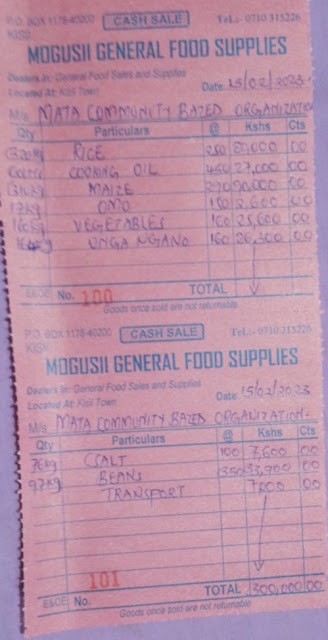 P.O. BOX 1178-40200 CASH SALE Tel.:- 0710 315226
KISII
MOGUSII GENERAL FOOD SUPPLIES
Dealers in: General Food Sales and Supplies
Located At: Kisii Town Date: 15/02/2023
M/s MATA COMMUNITY BASED ORGANIZATION
Qty Particulars @ Kshs Cts
320kg RICE 250 80,000 00
COOKING OIL 450 27,000 00
MAIZE 00
17kg OMO 150 2,600 00
160kg VEGETABLES 160 25,600 00
UNGA NGANO 160 26,300 00
E&OE No. 100 TOTAL
Goods once sold are not returnable
P.O. BOX 1178-40200 CASH SALE Tel.:- 0710 315226
KISII
MOGUSII GENERAL FOOD SUPPLIES
Dealers in: General Food Sales and Supplies
Located At: Kisii Town Date: 15/02/2023
M/s MATA COMMUNITY BASED ORGANIZATION
Qty Particulars @ Kshs Cts
76kg SALT 100 7,600 00
97kg BEANS 350 00
TRANSPORT 00
E&OE No. 101 TOTAL 300,000 00
Goods once sold are not returnable